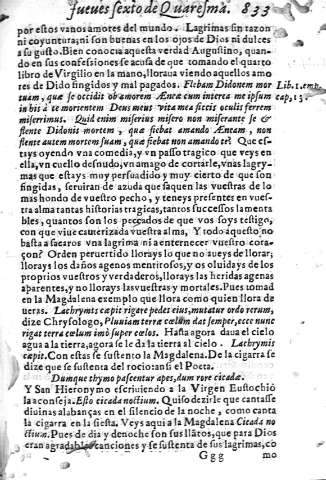 Jueues sexto de Quaresma. 833
por estos vanos amores del mundo. Lagrimas sin razon
ni coyuntura; ni son buenas en los ojos de Dios ni dulces
a su gusto. Bien conocia aquesta verdad Augustino, quan-
do en sus confessiones se acusa de que tomando el quarto
libro de Virgilio en la mano, lloraua viendo aquellos amo
res de Dido fingidos y mal pagados. Flebam Didonem mor
tuam, quæ se occidit ob amorem Æneæ cum interea me ipsum
in his à te morientem Deus meus vita mea siccis oculis ferrem
miserrimus. Quid enim miserius misero non miserante se &
flente Didonis mortem, quæ fiebat amando Æneam, non
flente autem mortem suam, quæ fiebat non amando te? Que es-
teys oyendo vna comedia, y vn passo tragico que veys en
ella, vn cuello desnudo, vn amago de cortarle, vnas lagry-
mas que estays muy persuadido y muy cierto de que son
fingidas, seruiran de azuda que saquen las vuestras de lo
mas hondo de vuestro pecho, y teneys presentes en vues-
tra alma tantas historias tragicas, tantos sucessos lamenta
bles, quantos son los pecados de que vos soys testigo,
con que viue cauterizada vuestra alma, Y todo aquesto no
basta a sacaros vna lagrima ni a enternecer vuestro cora-
çon? Orden peruertido llorays lo que no aueys de llorar;
llorays los daños agenos mentirosos, y os oluidays de los
proprios vuestros y verdaderos, llorays las heridas agenas
aparentes, y no llorays las vuestras y mortales. Pues tomad
en la Magdalena exemplo que llora como quien llora de
veras. Lachrymis cæpit rigare pedes eius, mutatur ordo rerum,
dize Chrysologo, Pluuiam terræ cælum dat semper, ecce nunc
rigat terra cælum imò super cælos. Hasta agora daua el cielo
agua a la tierra, agora se le da la tierra al cielo. Lachrymis
cæpit. Con estas se sustento la Magdalena. De la cigarra se
dize que se sustenta del rocio: tansi el Poeta.
Dumque thymo pascentur apes, dum rore cicadæ.
Y San Hieronymo escriuiendo a la Virgen Eustochiò
la aconseja. Esto cicada noctium. Quiso dezirle que cantasse
diuinas alabanças en el silencio de la noche, como canta
la cigarra en la siesta. Veys aqui a la Magdalena Cicada no
ctium. Pues de dia y de noche son sus llãtos, que para Dios
eran agradables canciones y se sustento de sus lagrimas, co
Ggg mo
Lib. 1.
cap. 13.